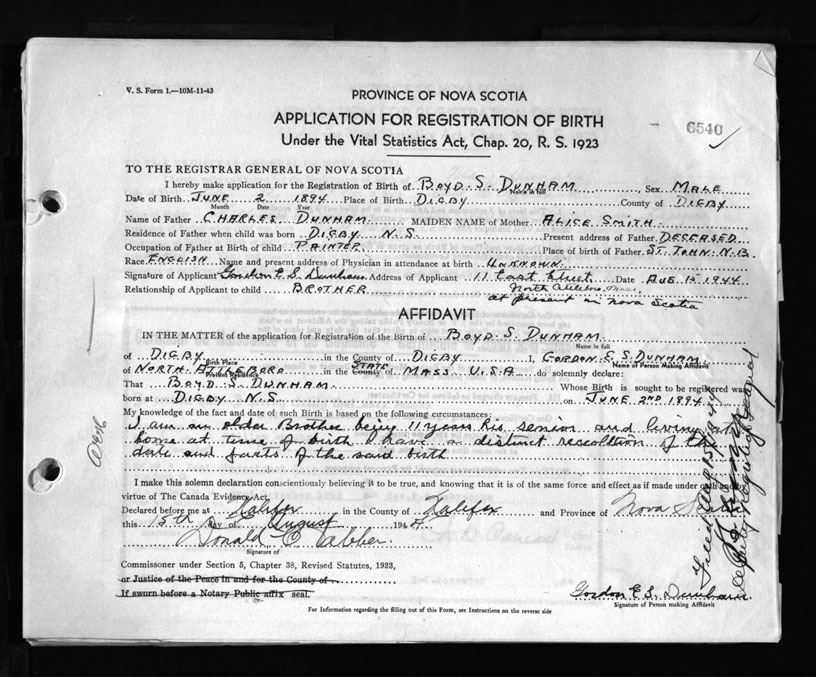 V. S. Form 1.—10M-11-43
PROVINCE OF NOVA SCOTIA
APPLICATION FOR REGISTRATION OF BIRTH
6540
Under the Vital Statistics Act, Chap. 20, R. S. 1923
TO THE REGISTRAR GENERAL OF NOVA SCOTIA
I hereby make application for the Registration of Birth of BOYD. S. DUNHAM, Sex MALE
Name in full
Date of Birth JUNE 2 1894 Place of Birth DIGBY County of DIGBY
Month Date Year
Name of Father CHARLES DUNHAM MAIDEN NAME of Mother ALICE SMITH
Residence of Father when child was born DIGBY N.S. Present address of Father DECEASED
Occupation of Father at Birth of child PAINTER Place of birth of Father ST. JOHN. N.B.
Race ENGLISH Name and present address of Physician in attendance at birth UNKNOWN
Signature of Applicant Gordon E S Dunham Address of Applicant 11 East Street Date AUG 15 1944
Relationship of Applicant to child BROTHER North Attleboro Mass
at present in Nova Scotia
AFFIDAVIT
IN THE MATTER of the application for Registration of the Birth of BOYD. S. DUNHAM
Name in full
of DIGBY in the County of DIGBY I, GORDON E. S. DUNHAM
Birth Place Name of Person Making Affidavit
of NORTH ATTLEBORO in the County STATE of MASS U.S.A do solemnly declare:
Present Residence
That BOYD S DUNHAM Whose Birth is sought to be registered was
born at DIGBY N.S. on JUNE 2ND 1894
My knowledge of the fact and date of such Birth is based on the following circumstances:
I am an older Brother being 11 years his senior and living at
home at time of birth I have a distinct recollection of the
date and facts of the said birth
I make this solemn declaration conscientiously believing it to be true, and knowing that it is of the same force and effect as if made under oath and by
virtue of The Canada Evidence Act.
Declared before me at Halifax in the County of Halifax and Province of Nova Scotia
this 15th day of August 1944
Donald C
Signature of
Commissioner under Section 5, Chapter 38, Revised Statutes, 1923,
or Justice of the Peace in and for the County of
If sworn before a Notary Public affix seal.
Gordon E S Dunham
Signature of Person making Affidavit
For Information regarding the filling out of this Form, see Instructions on the reverse side
Filed Aug 15, 1944
Deputy Registrar General